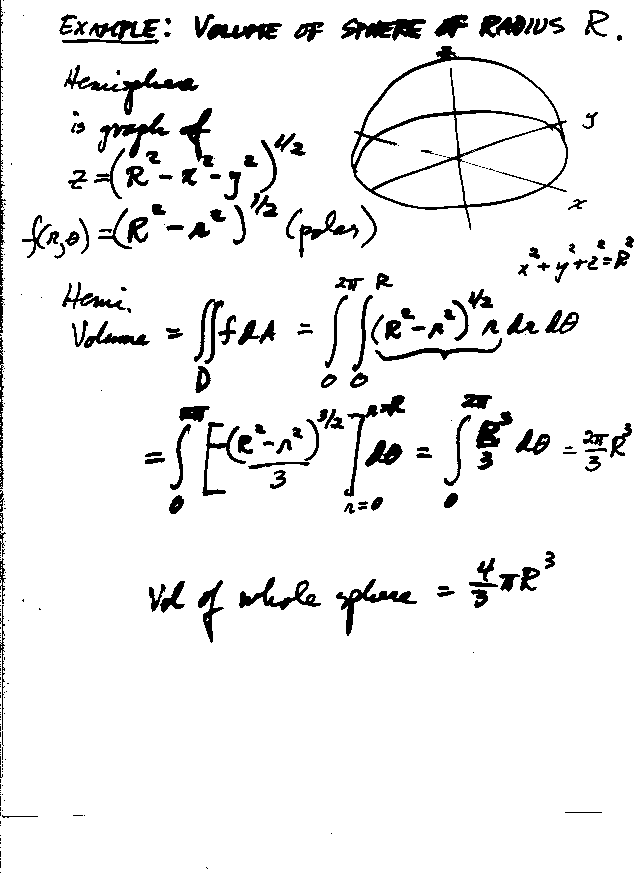 EXAMPLE: VOLUME OF SPHERE OF RADIUS R.
Hemisphere
is graph of
z = (R² - x² - y²)^1/2
f(r,θ) = (R² - r²)^1/2 (polar)
z
y
x
x² + y² + z² = R²
Hemi.
Volume = ∬_D f dA = ∫_0^2π ∫_0^R (R² - r²)^1/2 r dr dθ
= ∫_0^2π [-(R² - r²)^3/2 / 3]_r=0^r=R dθ = ∫_0^2π R³/3 dθ = 2π/3 R³
Vol of whole sphere = 4/3 πR³